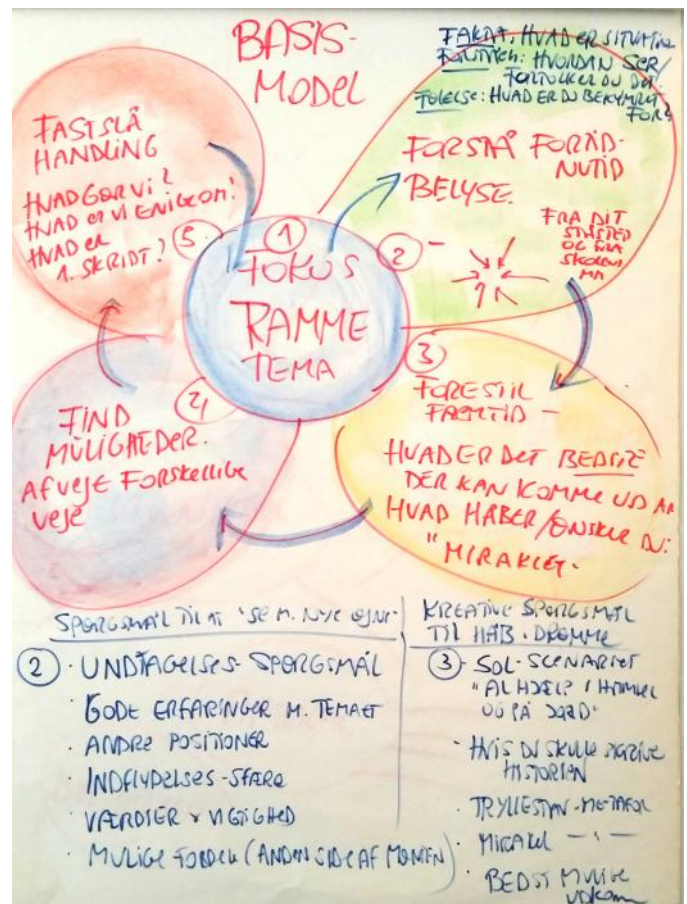 BASIS-
MODEL
FAKTA: HVAD ER SITUATION
HVORDAN SER/
FORTOLKER DU DET.
FØLELSE: HVAD ER DU BEKYMRET
FOR?
FASTSLÅ
HANDLING
HVAD GØR VI?
HVAD ER VI ENIGE OM?
HVAD ER
1. SKRIDT?
5
1
FOKUS
RAMME
TEMA
2
FORSTÅ FORTID-
NUTID
BELYSE.
FRA DIT
STÅSTED
OG FRA
3
FORESTIL
FREMTID -
HVAD ER DET BEDSTE
DER KAN KOMME UD AF
HVAD HÅBER/ØNSKER DU:
"MIRAKLET-
4
FIND
MULIGHEDER.
AFVEJE FORSKELLIGE
VEJE
SPØRGSMÅL TIL AT "SE M. NYE ØJNE"
2 · UNDTAGELSES-SPØRGSMÅL
· GODE ERFARINGER M. TEMAET
· ANDRE POSITIONER
· INDFLYDELSES-SFÆRE
· VÆRDIER & VIGTIGHED
· MULIGE FORDELE (ANDEN SIDE AF MØNTEN)
KREATIVE SPØRGSMÅL
TIL HÅB · DRØMME
3 · SOL-SCENARIET
"AL HJÆLP I HIMMEL
OG PÅ JORD"
· HVIS DU SKULLE SKRIVE
HISTORIEN
· TRYLLESTAV-METAFOR
· MIRAKEL — " —
· BEDST MULIGE
UDKOMME